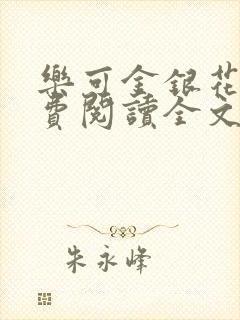 樂可金銀花
費閱讀全文
朱永峰